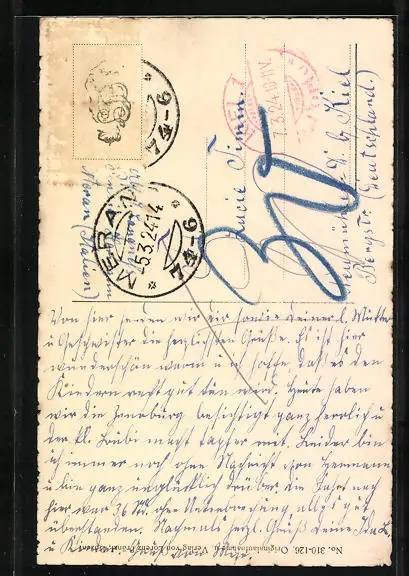 MERAN 1
-5.3.24.14
74-6
74-6
KIEL 1
7.3.24.10-11V.
Lucie Timm.
Neumühlen-D. b/ Kiel
Bergstr.
(Deutschland.)
Meran (Italien)
30
Von hier senden wir dir sowie deiner l. Mutter
u Geschwister die herzlichsten Grüße. Es ist hier
wunderschön warm u ich hoffe, daß es den
Kindern recht gut tun wird. Heute haben
wir die besichtigt ganz herrlich u
der kl. Bubi macht tapfer mit. Leider bin
ich immer noch ohne Nachricht von Hermann
u bin ganz unglücklich drüber die Fahrt nach
hier war 36 Std. ohne Unterbrechung alles gut
überstanden. Nochmals herzl. Gruß deine
u Kinder
No. 310-126. Originalaufnahme u. Verlag von Lorenz Fränzl, Bozen